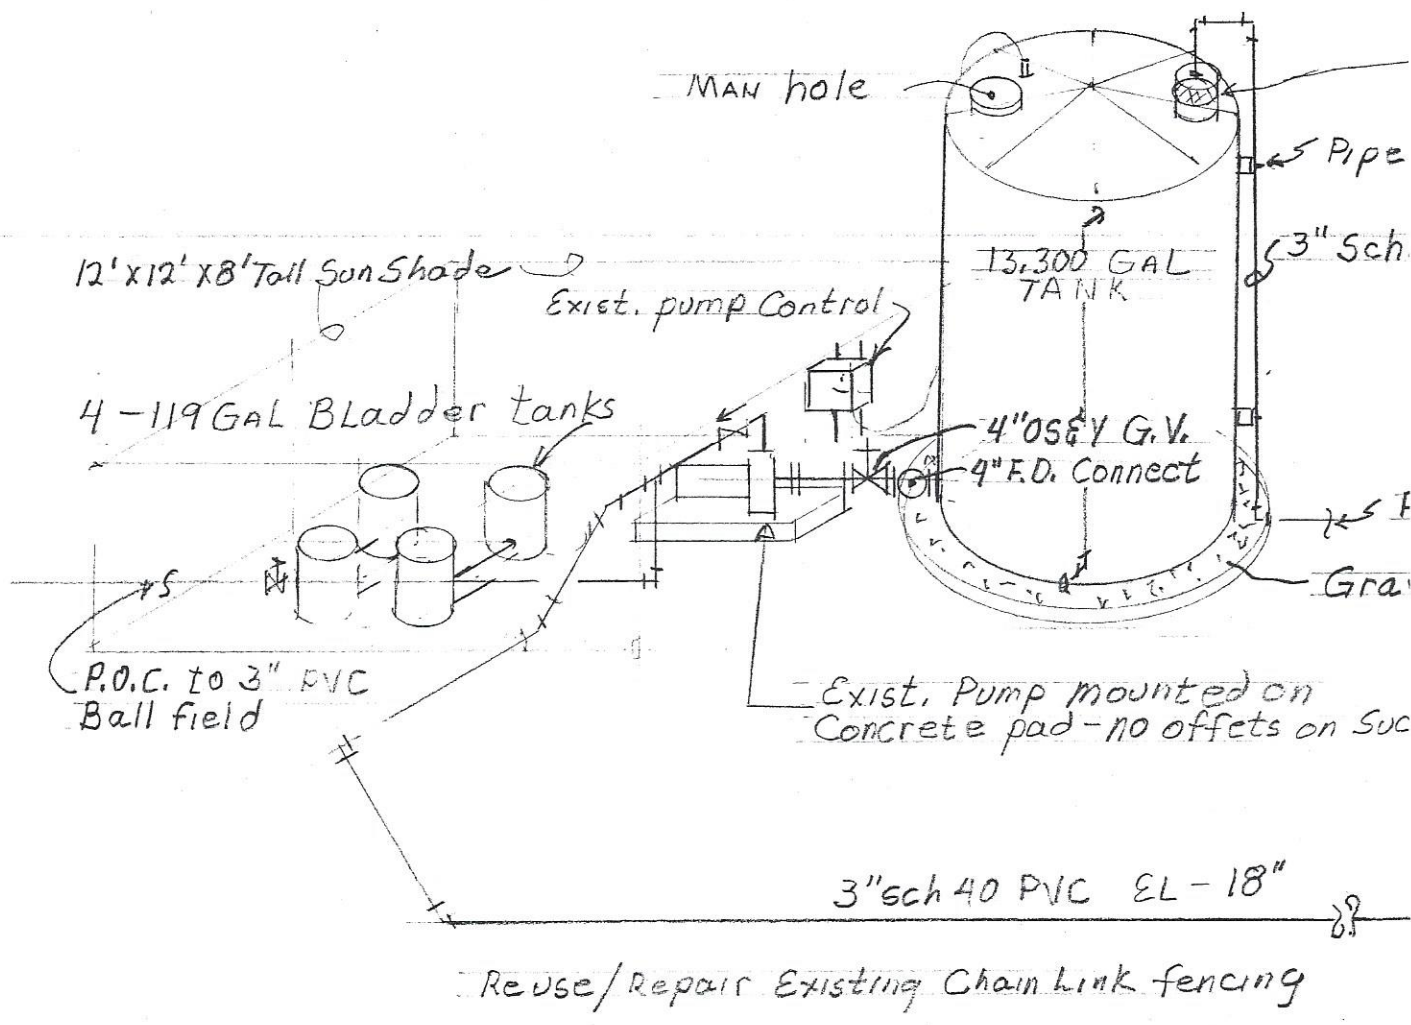 MAN hole
Pipe
3" Sch
13,300 GAL
TANK
12' X 12' X 8' Tall Sun Shade
Exist. pump Control
4 - 119 GAL BLadder tanks
4" OS&Y G.V.
4" F.D. Connect
Gra
P.O.C. to 3" PVC
Ball field
Exist. Pump mounted on
Concrete pad - no offets on Suc
3" sch 40 PVC EL - 18"
Reuse/Repair Existing Chain Link fencing